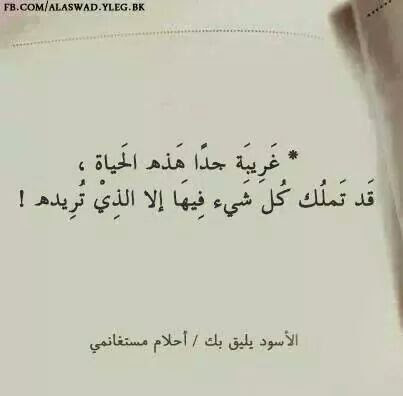 FB.COM/ALASWAD.YLEG.BK
* غَرِيبَة جدًا هَذه الَحياة ،
قَد تَملُك كُل شَيء فِيهَا إلا الذِيْ تُرِيده !
الأسود يليق بك / أحلام مستغانمي